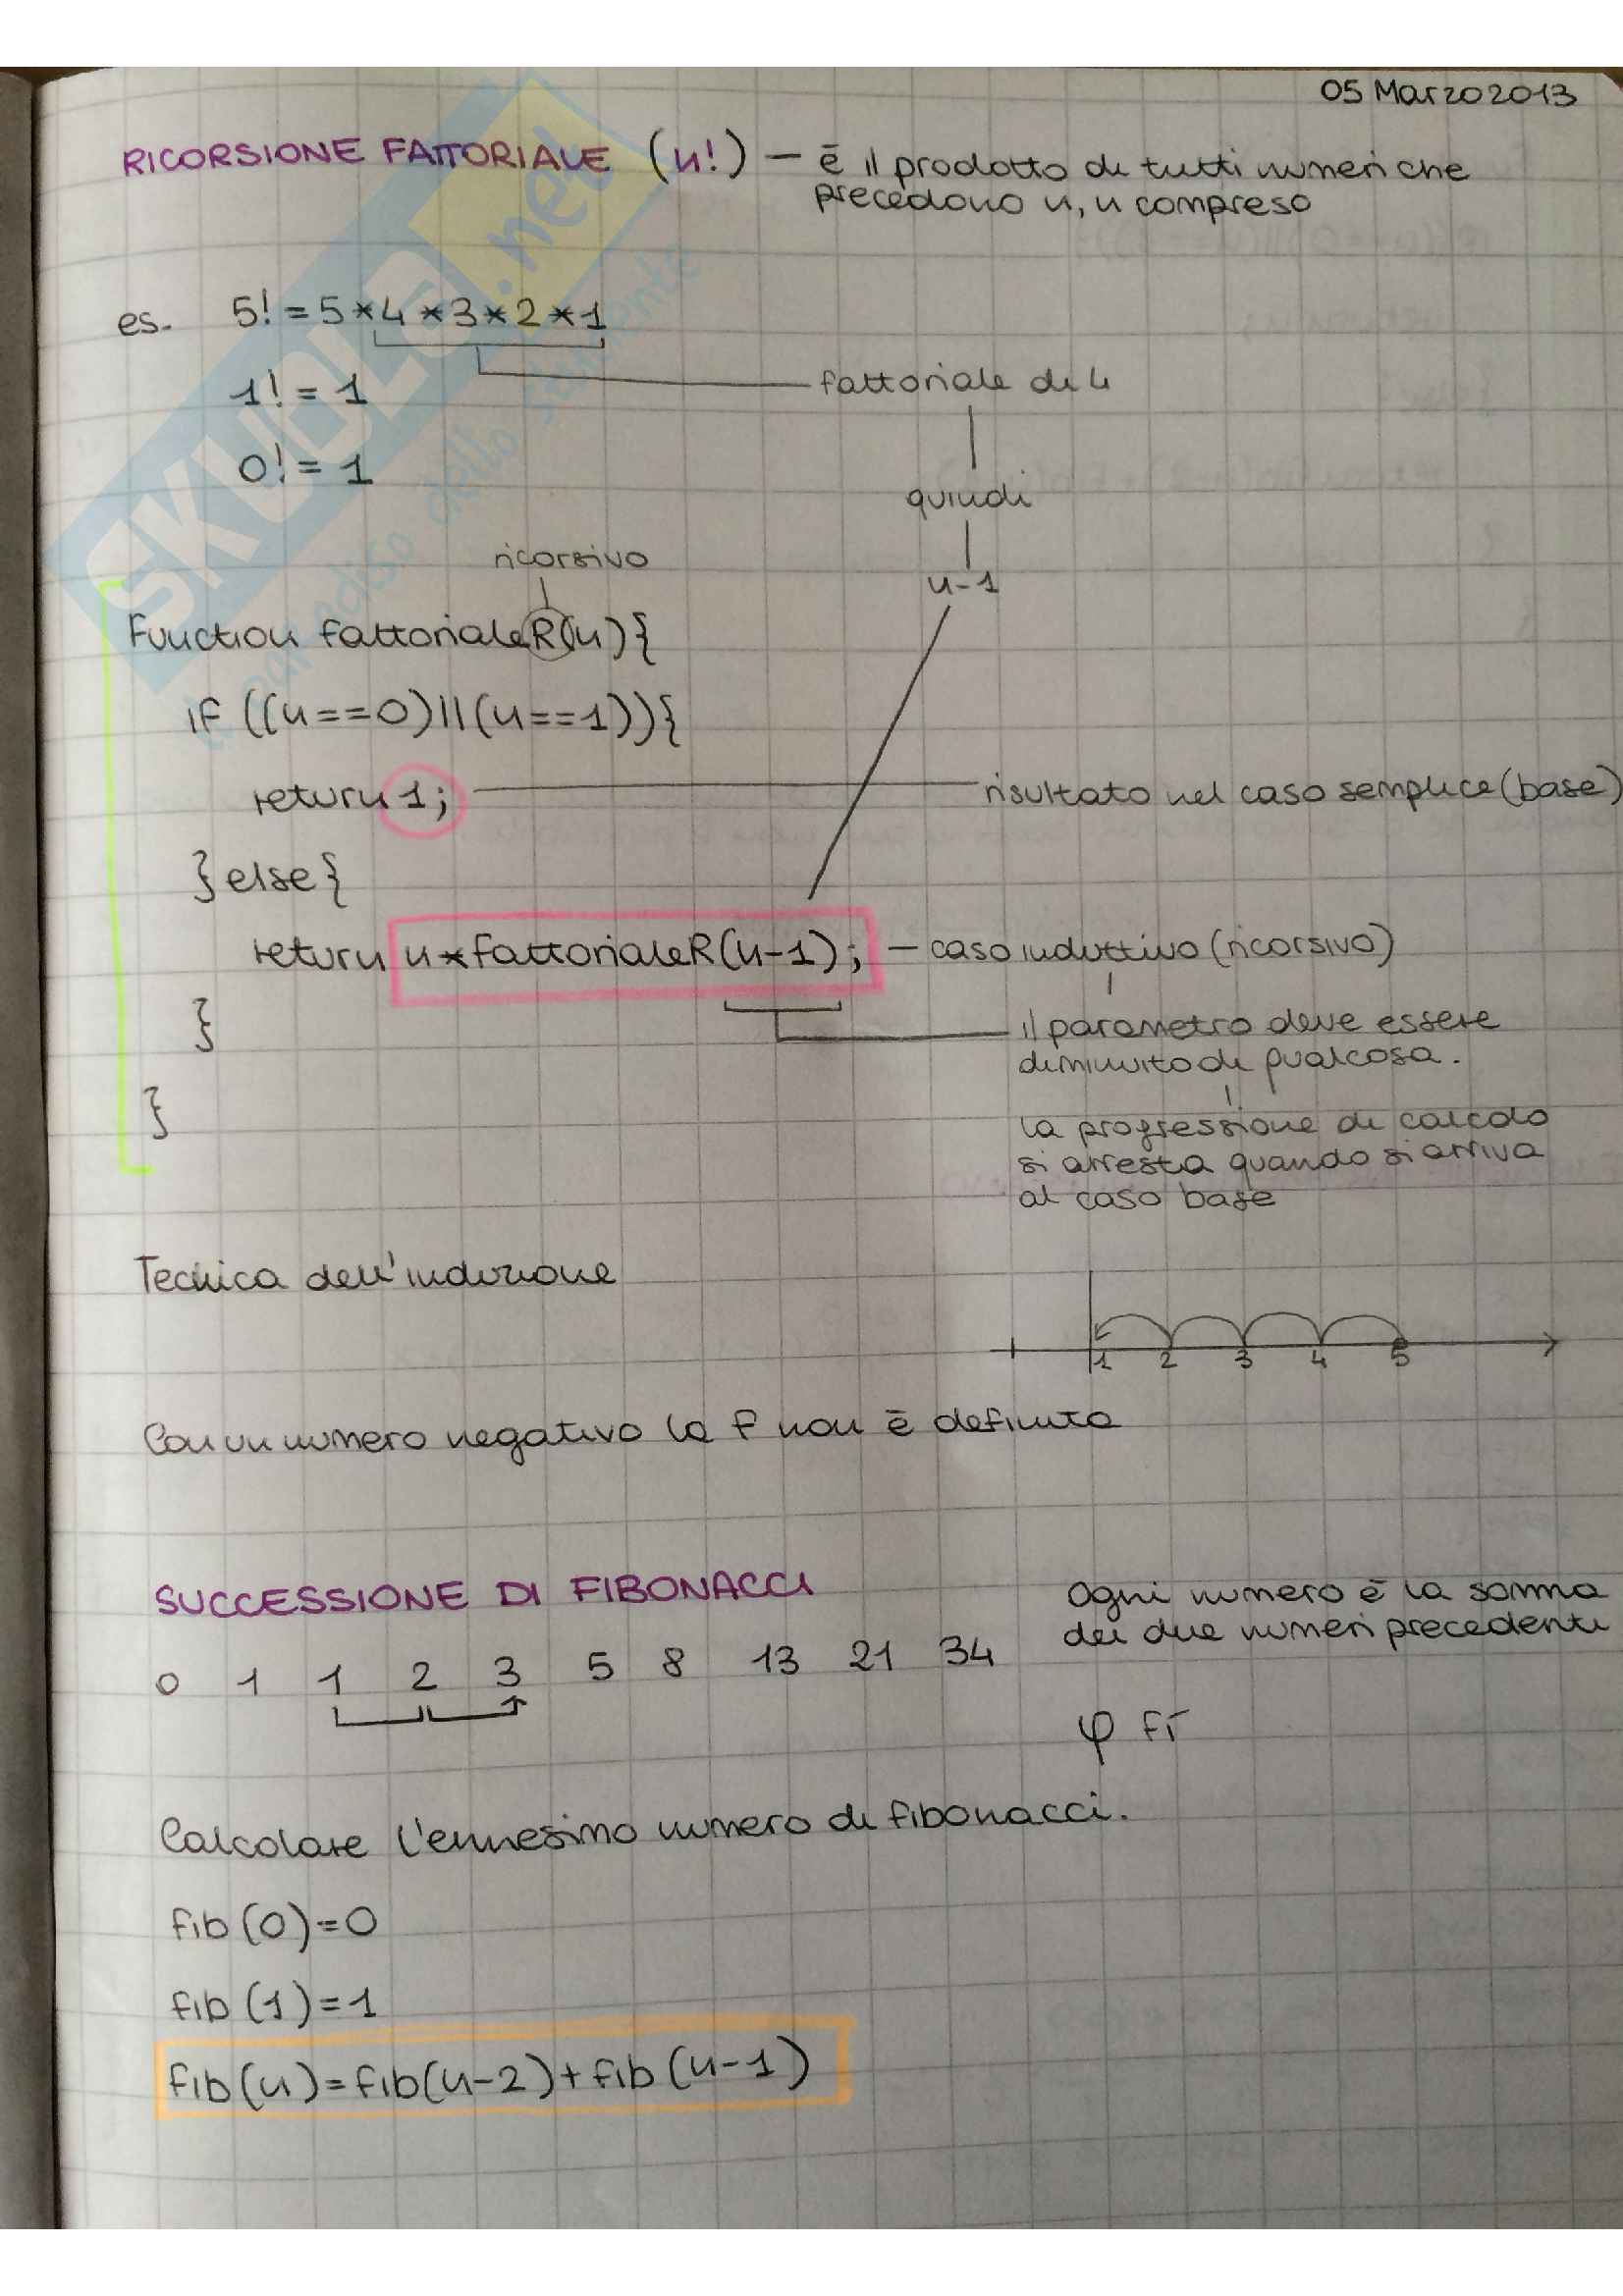 05 Marzo 2013
RICORSIONE FATTORIALE (n!) — è il prodotto di tutti numeri che
precedono n, n compreso
es. 5! = 5*4*3*2*1
fattoriale di 4
1! = 1
0! = 1
quindi
n-1
ricorsivo
Function fattorialeR(n){
if ((n==0)||(n==1)){
return 1; risultato nel caso semplice (base)
}else{
return n*fattorialeR(n-1); — caso induttivo (ricorsivo)
}
il parametro deve essere
diminuito di qualcosa.
}
la progressione di calcolo
si arresta quando si arriva
al caso base
Tecnica dell'induzione
1 2 3 4 5
Con un numero negativo la f non è definita
SUCCESSIONE DI FIBONACCI
Ogni numero è la somma
dei due numeri precedenti
0 1 1 2 3 5 8 13 21 34
φ fi
Calcolare l'ennesimo numero di fibonacci.
fib(0)=0
fib(1)=1
fib(n)=fib(n-2)+fib(n-1)
SKUOLA.net
il paradiso dello studente